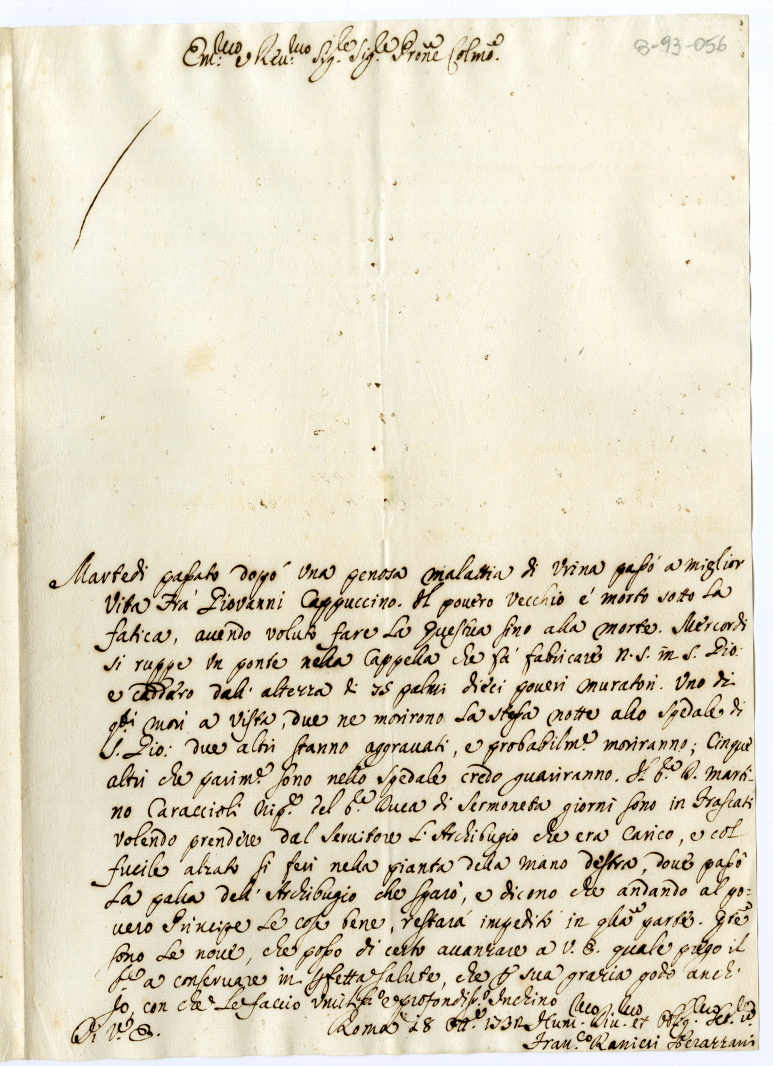 Em.mo e Reu.mo Sig.re Sig.re Prone Colmo.
B-93-056
Martedi passato dopò una penosa malattia di Vrina passò a miglior
Vita Frà Giovanni Cappuccino. Il pouero vecchio è morto sotto la
fatica, auendo voluto fare la questua fino alla morte. Mercordi
si ruppe un ponte nella Cappella che fà fabricare N. S. in S. Gio:
e caddero dall' altezza di 75 palmi dieci poueri muratori. Uno di
q.ti morì a vista, due ne morirono la stessa notte allo spedale di
S. Gio: due altri stanno aggrauati, e probabilm.e moriranno; Cinque
altri che parim.e sono nello spedale credo guariranno. Il S.r D. Marti-
no Caraccioli Nip.e del S.r Duca di Sermoneta giorni sono in Frascati
volendo prendere dal Seruitore L'Archibugio che era carico, e col
fucile alzato si ferì nella pianta della mano destra, doue passò
la palla dell' Archibugio che sparò, e dicono che andando al po=
uero Principe le cose bene, restarà impedito in q.lla parte. Q.ste
sono le noue, che posso di certo auanzare a V. E. quale prego il
S.re a conseruare in pfetta salute, che p sua grazia godo anch'
Io, con che le faccio umiliss.o e profondiss.o Inchino
Di V. E. Roma 18 Ott.e 1732 Hum. Diu. et Obblig.
Fran.co Ranieri